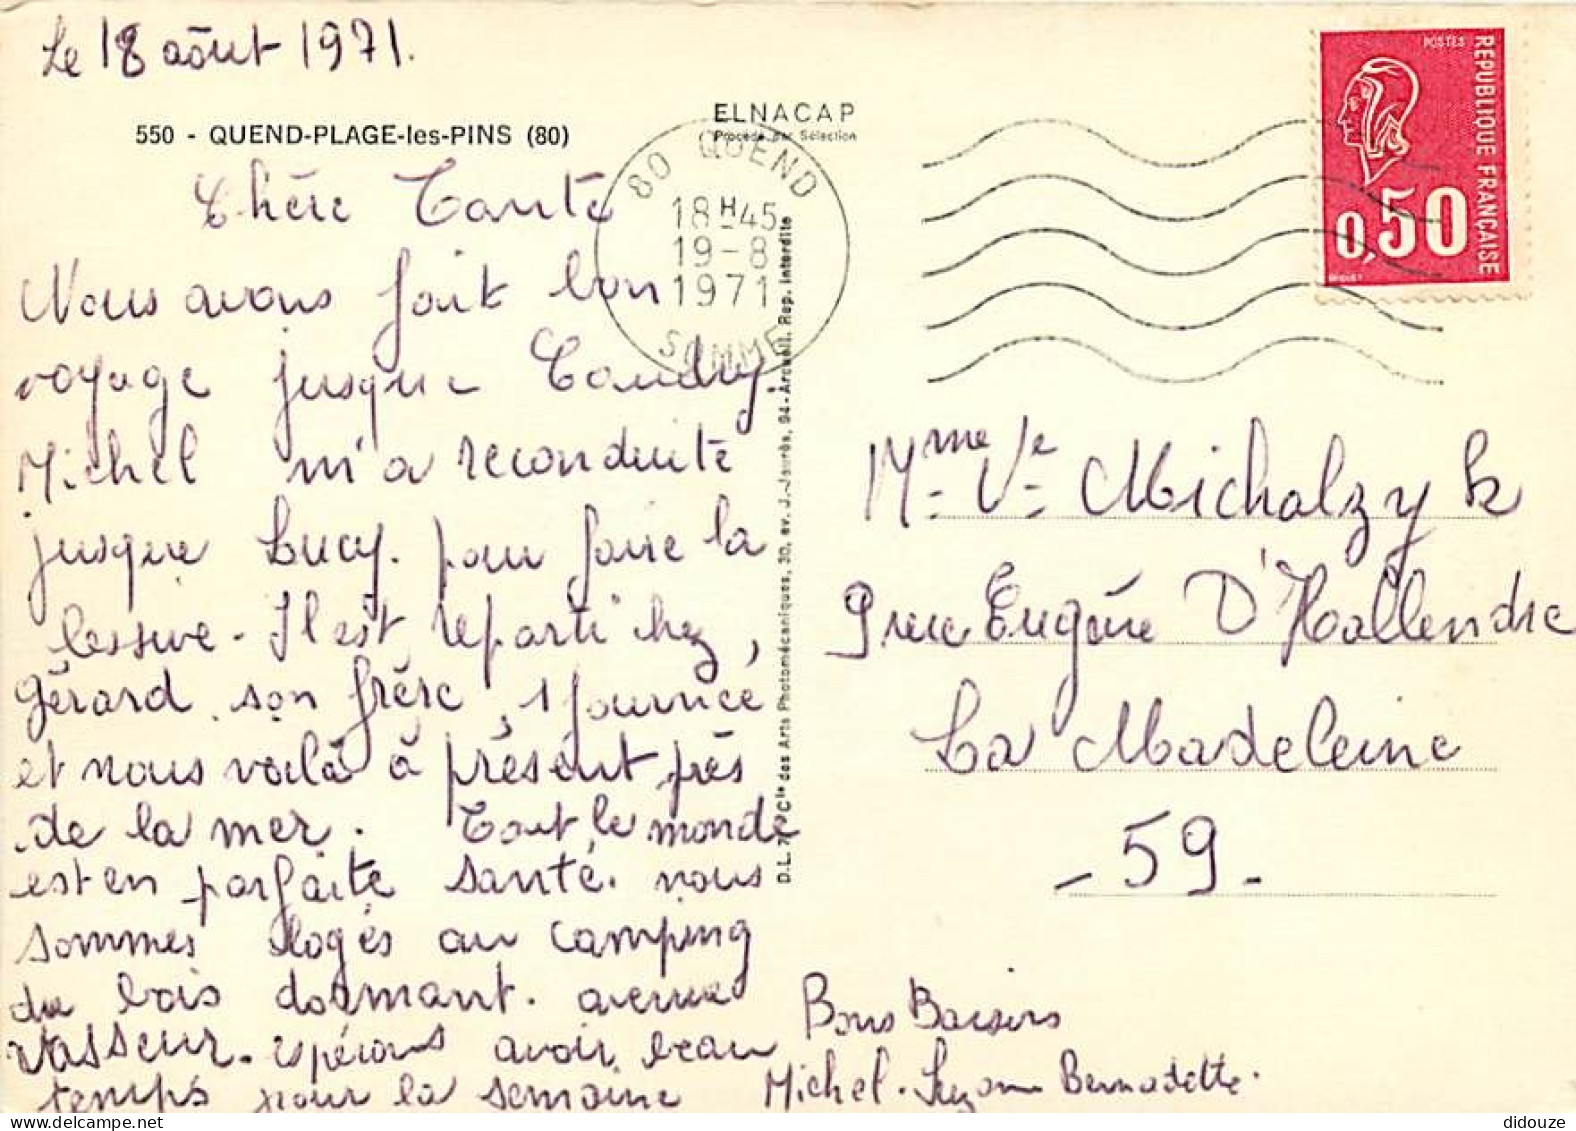 Le 18 août 1971.
550 - QUEND-PLAGE-les-PINS (80)
ELNACAP
Procédé par Sélection
80 QUEND
18H45
19-8
1971
SOMME
POSTES
REPUBLIQUE FRANÇAISE
0,50
Chère Tante
Nous avons fait bon
voyage jusque Caudry.
Michel m'a reconduite
jusque Lucy. pour faire la
lessive - Il est reparti chez
Gérard son frère, 1 journée
et nous voilà à présent près
de la mer. Tout le monde
est en parfaite santé. nous
sommes logés au camping
du bois dormant. avenue
Vasseur. espérons avoir beau
temps pour la semaine
Bons Baisers
Michel. Suzanne Bernadette.
Mme Ve Michalzyk
9 rue Eugène D'Hallendre
La Madeleine
- 59 -
Cie des Arts Photomécaniques, 30, av. J.-Jaurès, 94-Arcueil. Rep. interdite
didouze